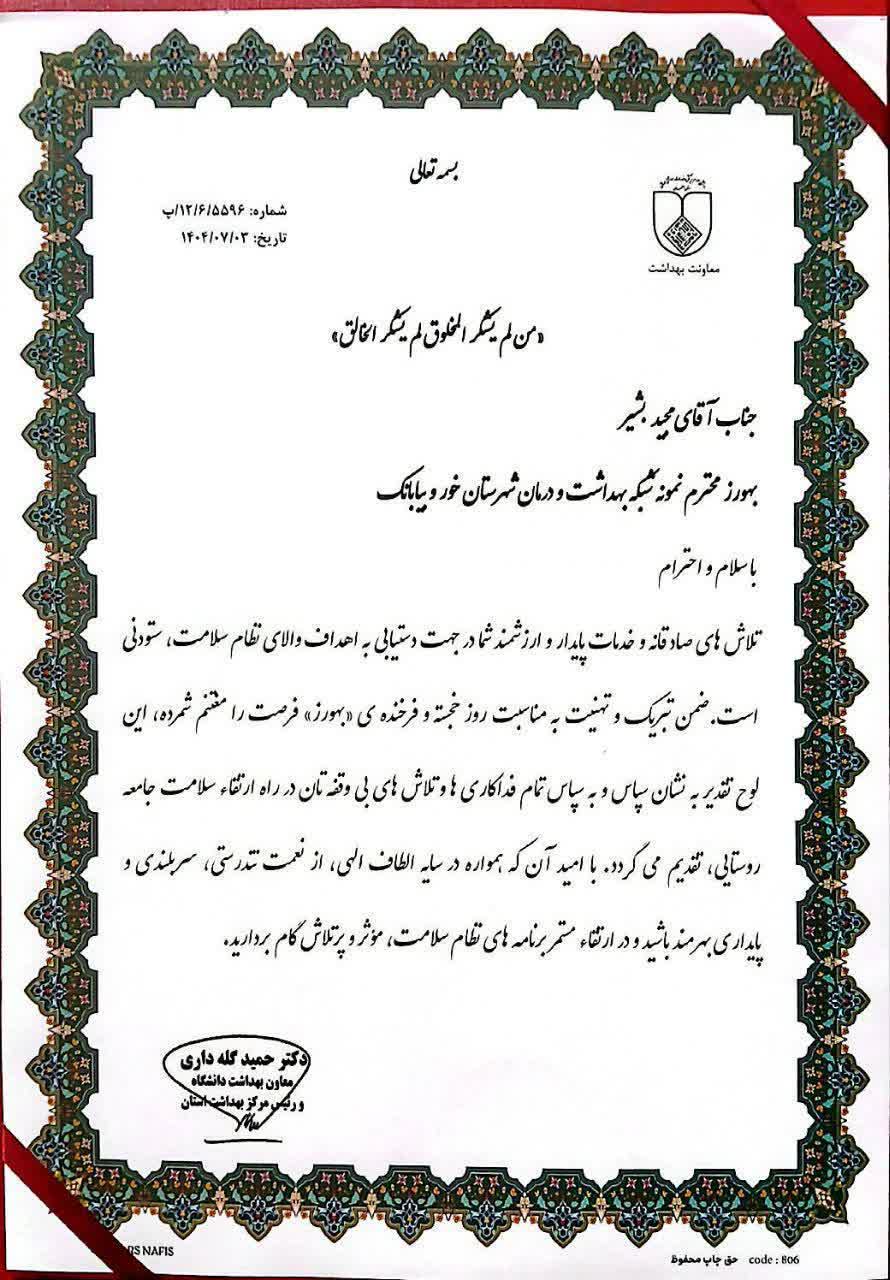 بسمه تعالی
شماره: ۱۲/۶/۵۵۹۶/پ
تاریخ: ۱۴۰۴/۰۷/۰۳
معاونت بهداشت
«من لم یشکر المخلوق لم یشکر الخالق»
جناب آقای مجید بشیر
بهورز محترم نمونه شبکه بهداشت و درمان شهرستان خور و بیابانک
با سلام و احترام
تلاش های صادقانه و خدمات پایدار و ارزشمند شما در جهت دستیابی به اهداف والای نظام سلامت، ستودنی
است. ضمن تبریک و تهنیت به مناسبت روز خجسته و فرخنده ی «بهورز» فرصت را مغتنم شمرده، این
لوح تقدیر به نشان سپاس و به سپاس تمام فداکاری ها و تلاش های بی وقفه تان در راه ارتقاء سلامت جامعه
روستایی، تقدیم می گردد. با امید آن که همواره در سایه الطاف الهی، از نعمت تندرستی، سربلندی و
پایداری بهرمند باشید و در ارتقاء مستمر برنامه های نظام سلامت، مؤثر و پرتلاش گام بردارید.
دکتر حمید گله داری
معاون بهداشت دانشگاه
و رئیس مرکز بهداشت استان
NAFIS
حق چاپ محفوظ code : 806